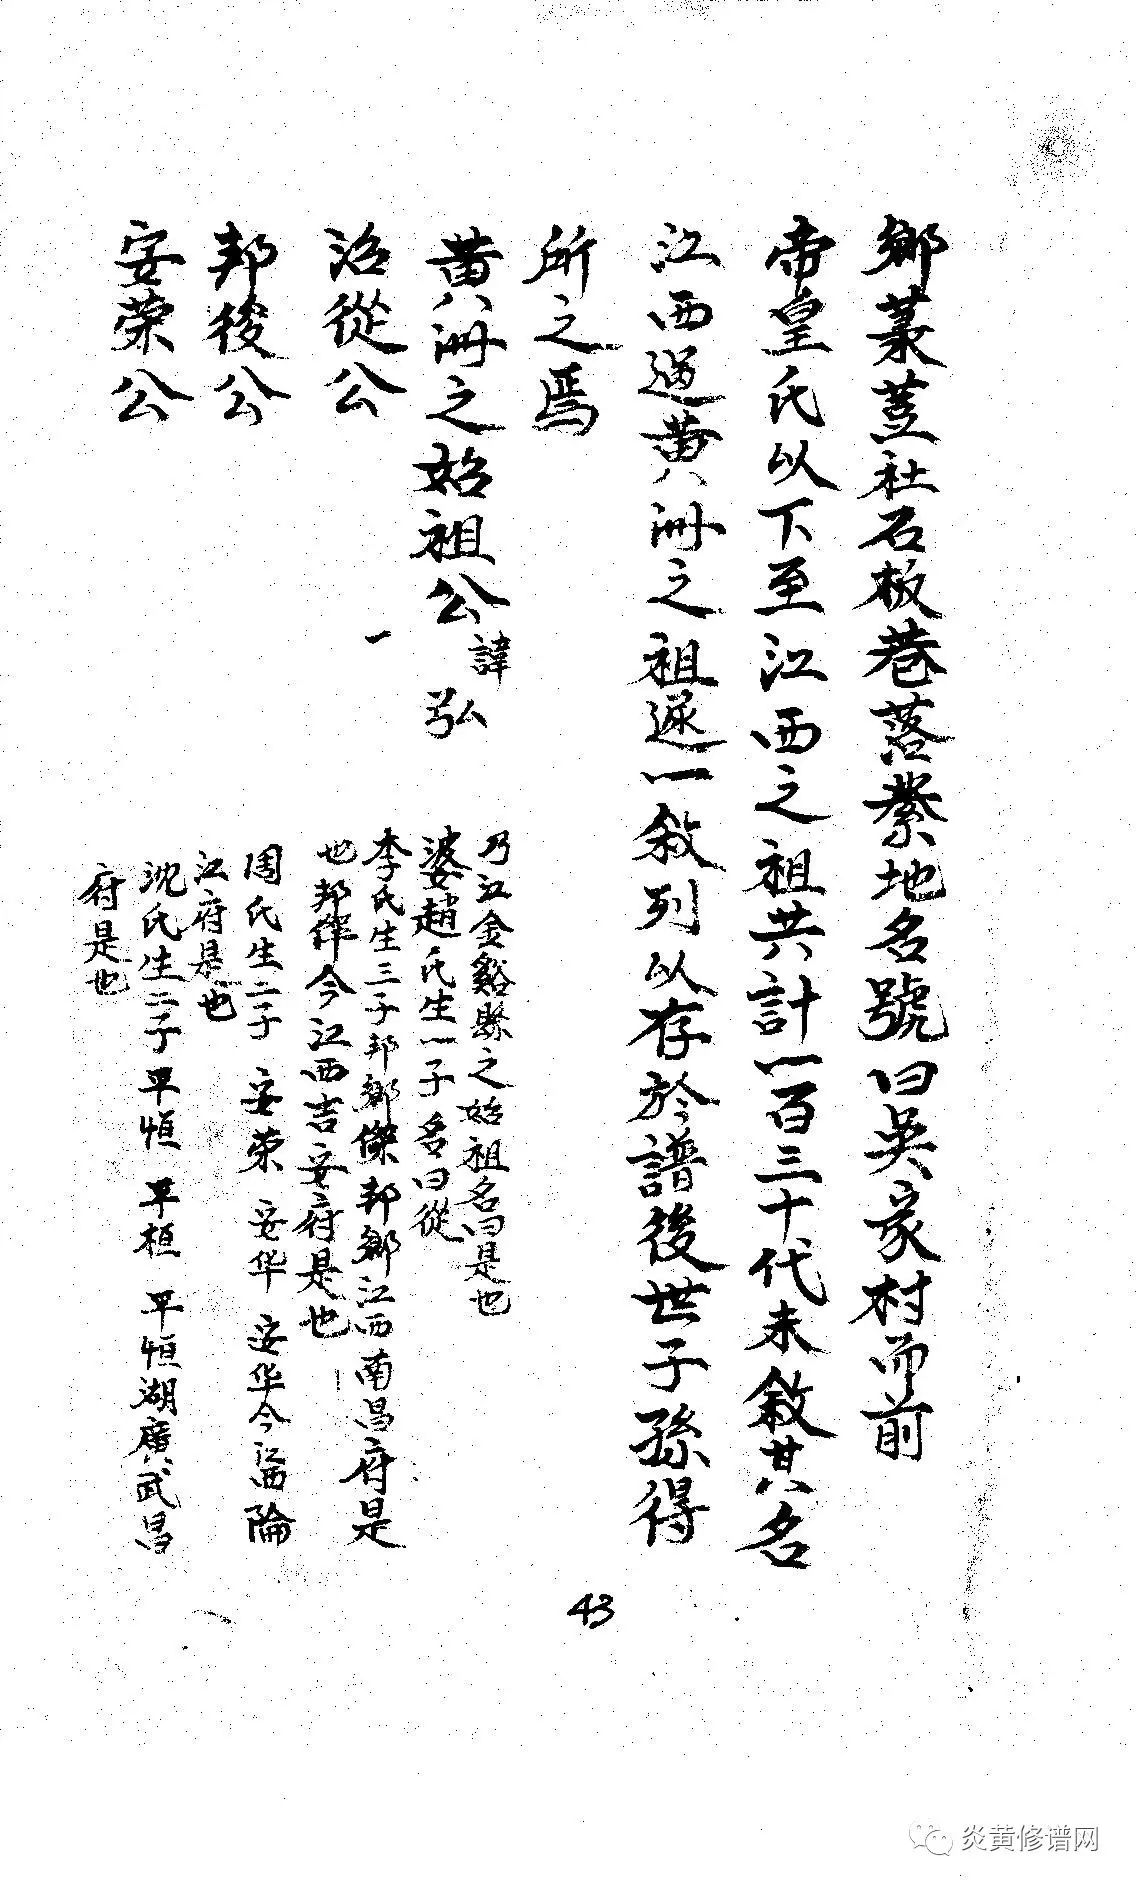 鄉蓁荳社石板巷落業地名號曰吳家村而前
帝皇氏以下至江西之祖共計一百三十代未敘其名
江西過黃洲之祖遞一敘列以存於譜後世子孫得
所之焉
黃洲之始祖公諱弘一
乃江金谿縣之始祖名曰是也
婆趙氏生一子名曰從
治從公
李氏生三子邦鄉傑邦鄉江西南昌府是
也邦傑今江西吉安府是也
邦後公
周氏生二子 安荣 安华 安华今江西
江府是也
安荣公
沈氏生二子 平恒 平桓 平恒湖廣武昌
府是也
43
炎黄修谱网